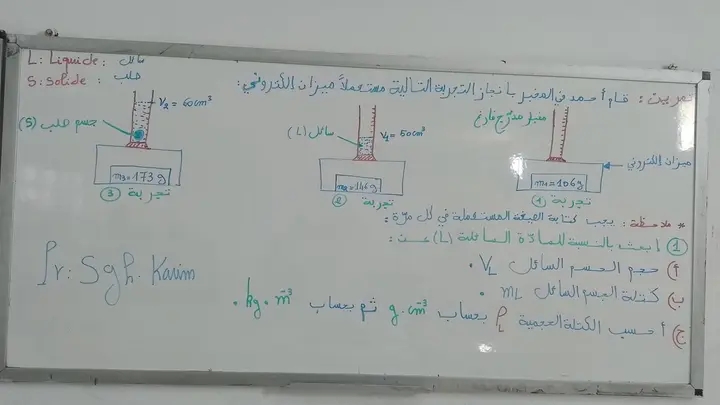 L: Liquide: سائل
S: Solide: صلب
تمرين: قام أحمد في المخبر بانجاز التجربة التالية مستعملاً ميزان الكتروني:
(S) جسم صلب
V₂ = 60cm³
m₃ = 173g
تجربة ③
سائل (L)
V₁ = 50cm³
m₂ = 146g
تجربة ②
مخبار مدرّج فارغ
ميزان الكتروني
m₁ = 106g
تجربة ①
* ملاحظة: يجب كتابة الصيغة المستعملة في كل مرّة:
① ابحث بالنسبة للمادّة السائلة (L) عن:
أ) حجم الجسم السائل V_L.
ب) كتلة الجسم السائل m_L.
ج) أحسب الكتلة الحجمية ρ_L بحساب g.cm⁻³ ثم بحساب kg.m⁻³.
Pr: Sgh: Karim